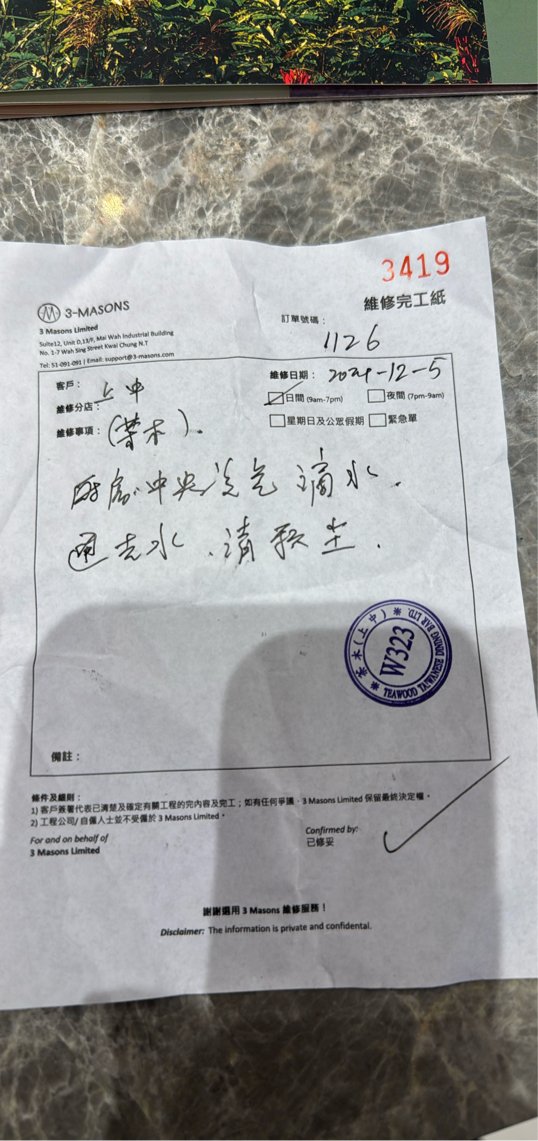 3419
維修完工紙
3-MASONS
3 Masons Limited
Suite12, Unit D,13/F, Mai Wah Industrial Building
No. 1-7 Wah Sing Street Kwai Chung N.T
Tel: 51-091-091 | Email: support@3-masons.com
訂單號碼：
1126
客戶：上中
維修分店：
維修事項：(茶木).
維修日期：2024-12-5
日間 (9am-7pm) 夜間 (7pm-9am)
星期日及公眾假期 緊急單
廚房中央冷氣滴水.
通去水.清積尘.
茶木(上中)
W323
TEAWOOD TAIWANESE DINING BAR LTD.
備註：
條件及細則：
1) 客戶簽署代表已清楚及確定有關工程的完內容及完工；如有任何爭議，3 Masons Limited 保留最終決定權。
2) 工程公司/自僱人士並不受僱於 3 Masons Limited。
For and on behalf of
3 Masons Limited
Confirmed by:
已修妥
謝謝選用 3 Masons 維修服務！
Disclaimer: The information is private and confidental.